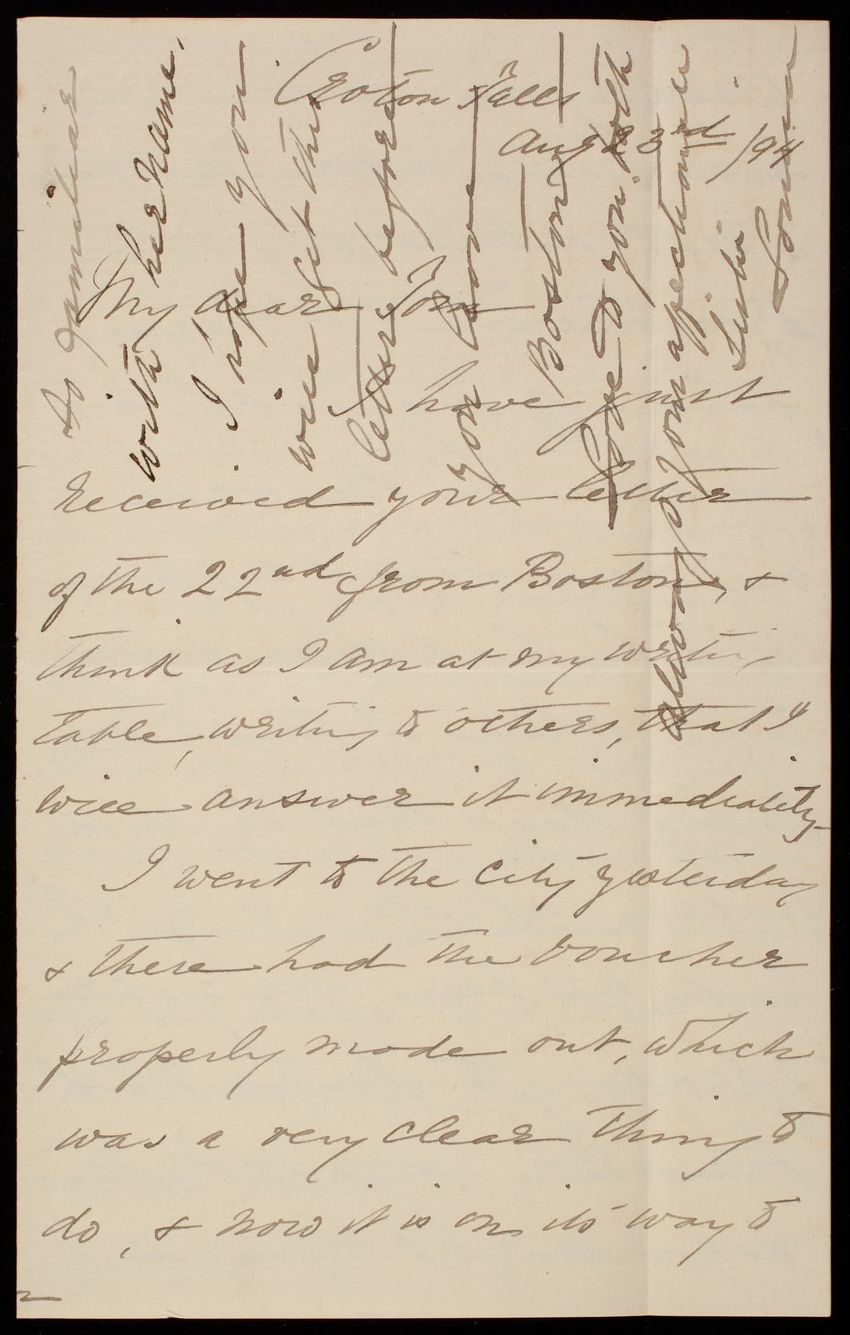 Croton Falls
Aug 23rd /94
My dear Tom
I have just
received your letter
of the 22nd from Boston, &
think as I am at my writing
table, writing to others, that I
will answer it immediately
I went to the city yesterday
& there had the voucher
properly made out, which
was a very clear thing to
do, & now it is on its way to
is familiar
with her name.
I hope you
will get this
letter before
you leave
Boston
Love to you both
Always your affectionate
Sister
Louisa